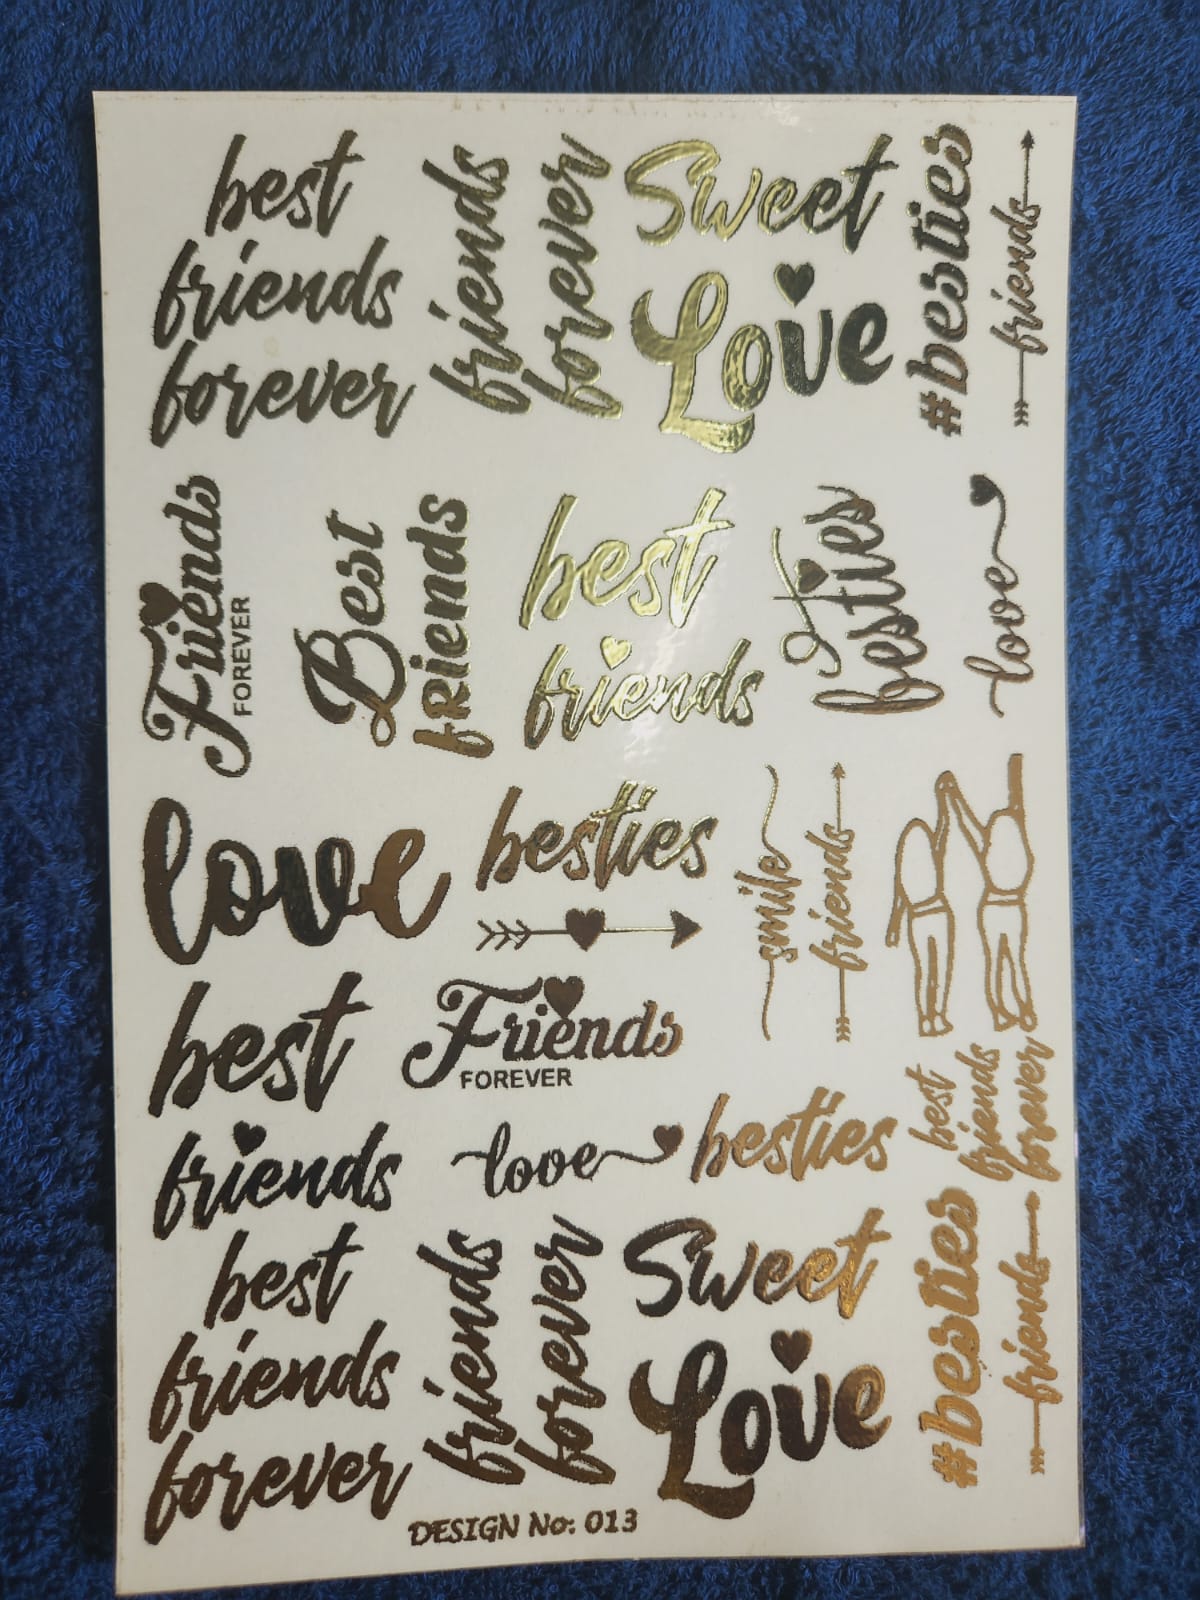 best
friends
forever
friends
forever
Sweet
Love
#besties
friends
Friends
FOREVER
Best
fRiends
best
friends
besties
love
love
besties
smile
friends
best
friends
Friends
FOREVER
love
besties
best
friends
forever
best
friends
forever
friends
forever
Sweet
Love
#besties
friends
DESIGN No: 013